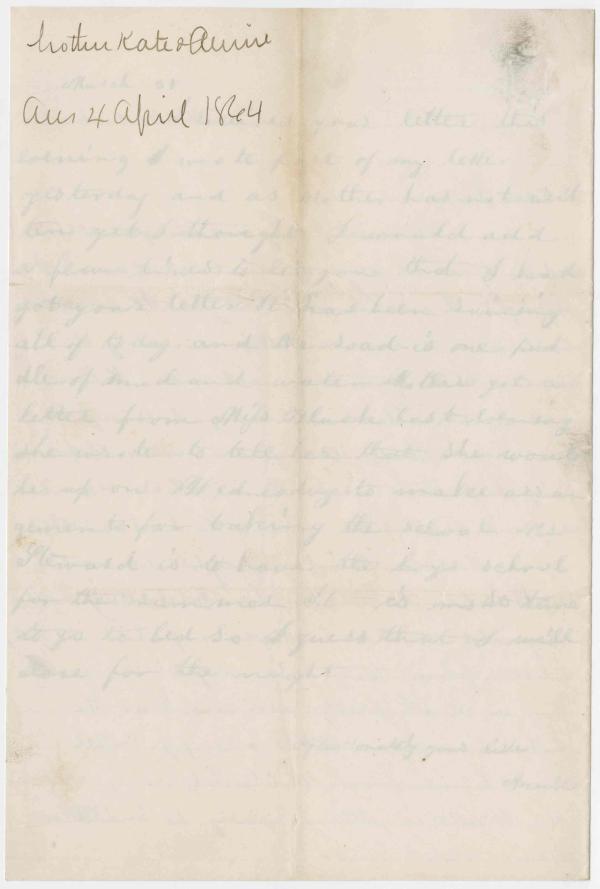 Mother Kate & Annie
March 31
Ans 4 April 1864
received your letter this
evening I wrote part of my letter
yesterday and as Mother has not writ
ten yet I thought I would add
a few lines to let you that I had
got your letter It has been raining
all of to day and the road is one pud
dle of mud and water Mother got a
letter from Miss last evening
she wrote to tell her that she would
be up on Wednesday to make arran
gements for taking the school Mr
Steward is to have the boys school
for the summer It is most time
to go to bed so I guess that I will
close for the night
Affectionately your sister